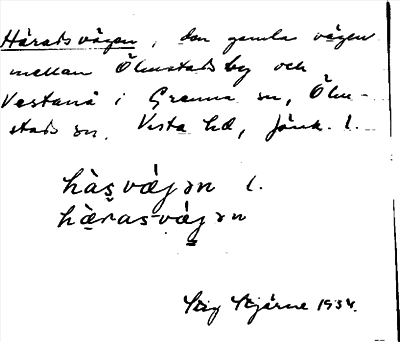 Häradsvägen, den gamla vägen
mellan Ölmstads by och
Vestanå i Grenna sn, Ölm-
stads sn. Vista hd, Jönk. l.
hàs̩vǽgən l.
hæ̀rasvǽgən
Stig Stjärne 1934.